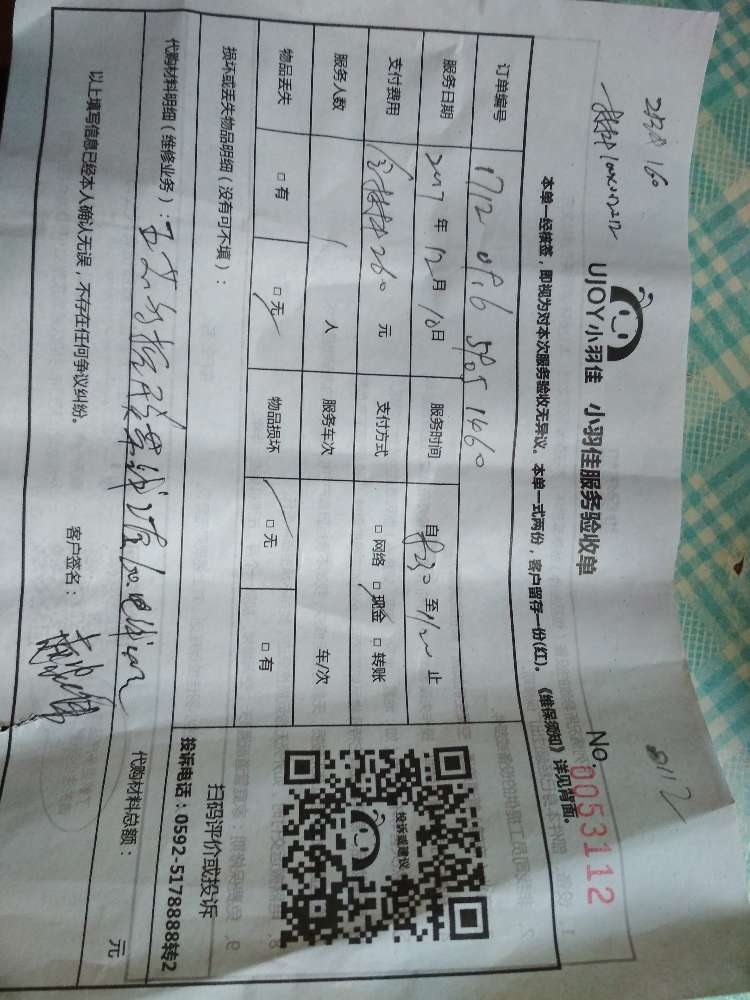 8112
UJOY小羽佳 小羽佳服务验收单
No. 0053112
本单一经核签，即视为对本次服务验收无异议。本单一式两份，客户留存一份(红)。《维保须知》详见背面。
订单编号
服务日期 2017 年 12 月 10 日 服务时间 自 至 止
支付费用 260 元 支付方式 □ 网络 □ 现金 □ 转账
服务人数 1 人 服务车次 车/次
物品丢失 □ 有 □ 无 物品损坏 □ 无 □ 有
损坏或丢失物品明细（没有可不填）：
代购材料明细（维修业务）：
代购材料总额： 元
以上填写信息已经本人确认无误，不存在任何争议纠纷。
客户签名：
投诉或建议
扫码评价或投诉
投诉电话：0592-5178888转2